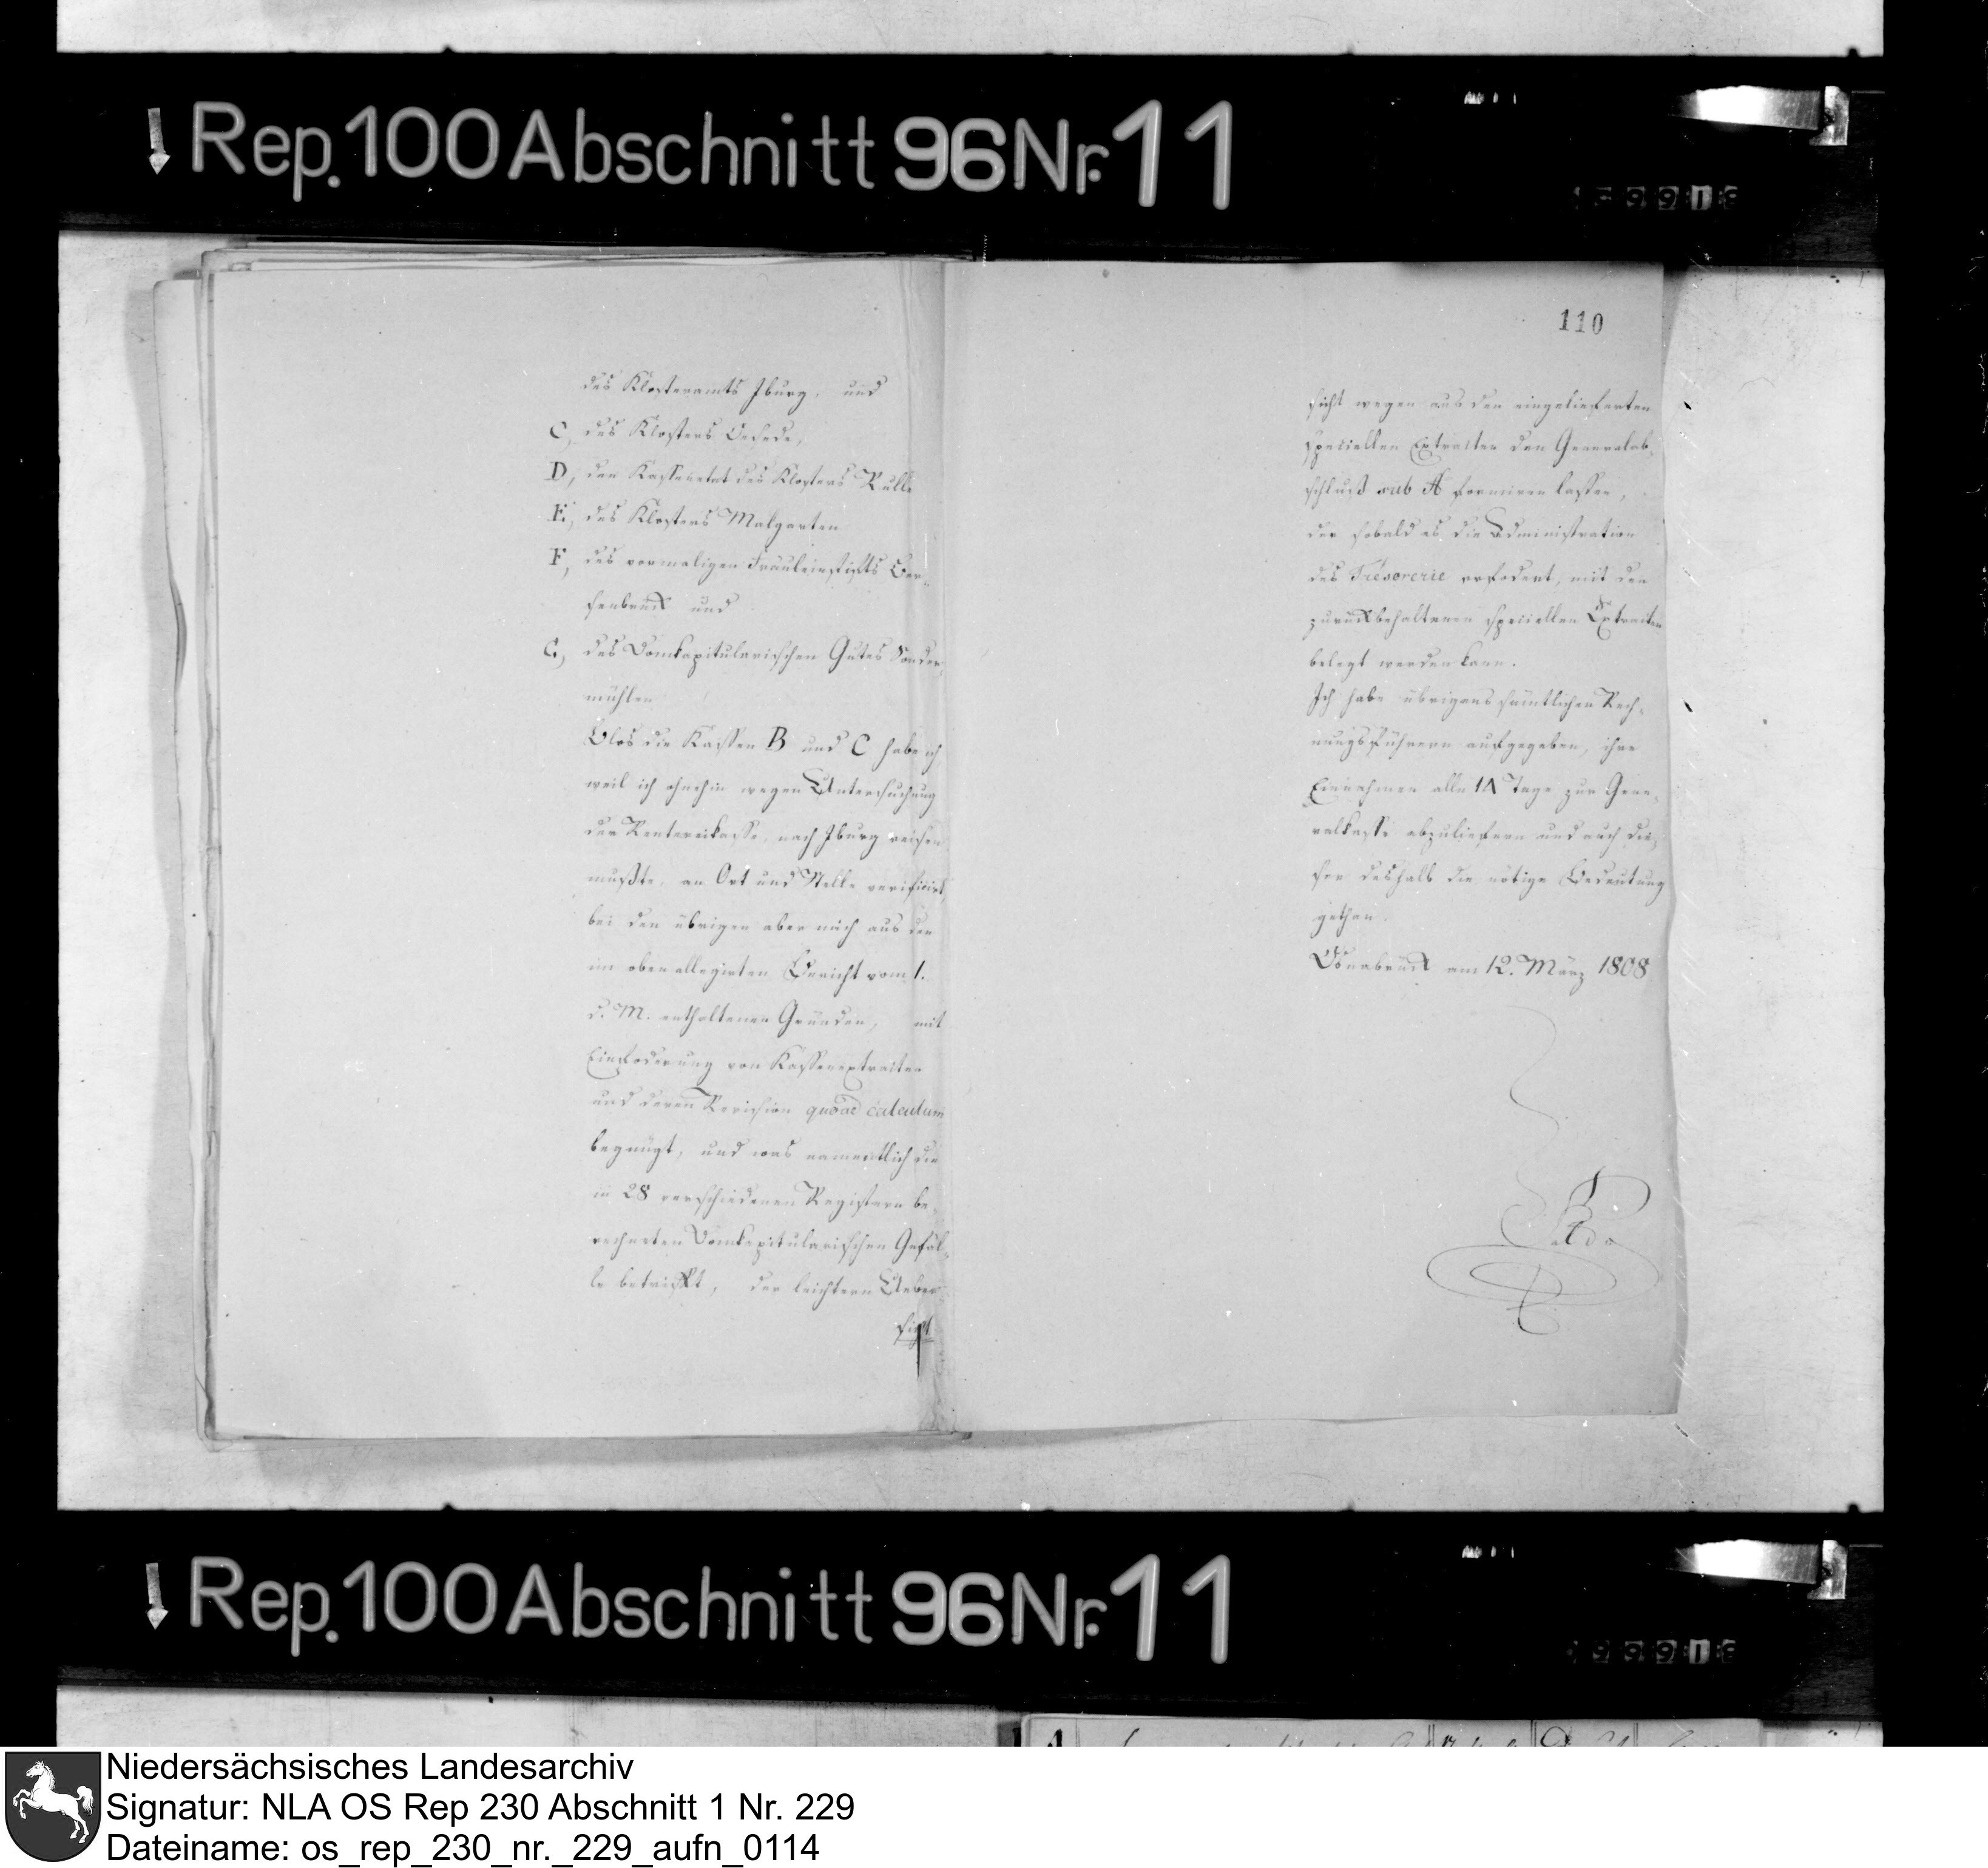 Rep. 100 Abschnitt 96 Nr. 11
des Klosteramts Iburg, und
C, des Klosters Oesede,
D, der Kassenetat des Klosters Rulle
E, des Klosters Malgarten
F, des vormaligen Fräuleinstifts Ber-
senbrück und
G, des Domkapitularischen Gutes Sonder-
mühlen
Blos die Kassen B und C habe ich
weil ich ohnehin wegen Untersuchung
der Rentereikasse, nach Iburg reisen
mußte, an Ort und Stelle verificirt,
bei den übrigen aber mich aus den
im oben allegirten Bericht vom 1.
d. M. enthaltenen Gründen, mit
Einfoderung von Kassenextracten
und deren Revision quoad calculum
begnügt, und was namentlich die
in 28 verschiedenen Registern be-
rechneten Domkapitularischen Gefäl-
le betrifft, der leichtern Ueber-
sicht
110
sicht wegen aus den eingelieferten
speciellen Extracten den Generalab-
schluß sub A formiren lassen,
der sobald es die Administration
des Trésorerie erfodert, mit den
zurückbehaltenen speciellen Extracten
belegt werden kann.
Ich habe übrigens sämtlichen Rech-
nungsführern aufgegeben, ihre
Einnahmen alle 14 Tage zur Gene-
ralkasse abzuliefern und auch die-
ser deshalb die nötige Bedeutung
gethan.
Osnabrück am 12. März 1808
Rep. 100 Abschnitt 96 Nr. 11
Niedersächsisches Landesarchiv
Signatur: NLA OS Rep 230 Abschnitt 1 Nr. 229
Dateiname: os_rep_230_nr._229_aufn_0114